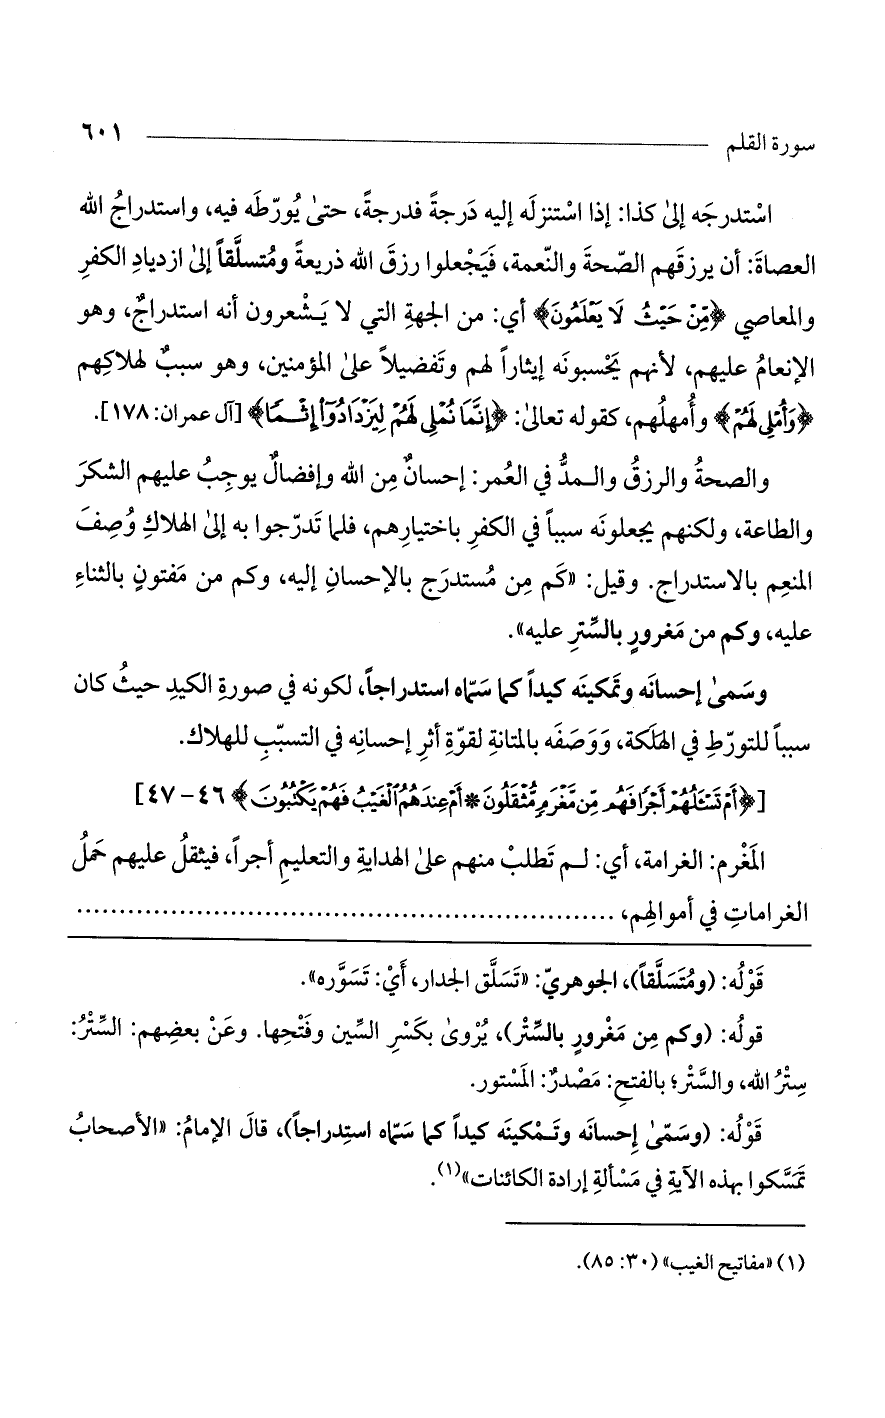 سورة القلم ٦٠١
اسْتدرجَه إلىٰ كذا: إذا اسْتنزلَه إليه دَرجةً فدرجةً، حتىٰ يُورّطَه فيه، واستدراجُ الله
العصاةَ: أن يرزقَهم الصّحةَ والنّعمة، فَيَجْعلوا رزقَ الله ذريعةً ومُتسلَّقاً إلىٰ ازديادِ الكفرِ
والمعاصي ﴿مِّنْ حَيْثُ لَا يَعْلَمُونَ﴾ أي: من الجهةِ التي لا يَـشْعرون أنه استدراجٌ، وهو
الإنعامُ عليهم، لأنهم يَحْسبونَه إيثاراً لهم وتَفضيلاً علىٰ المؤمنين، وهو سببٌ لهلاكِهم
﴿وَأُمْلِي لَهُمْ﴾ وأُمهلُهم، كقوله تعالىٰ: ﴿إِنَّمَا نُمْلِي لَهُمْ لِيَزْدَادُوٓا۟ إِثْمًا﴾ [آل عمران: ١٧٨].
والصحةُ والرزقُ والـمدُّ في العُمر: إحسانٌ مِن الله وإفضالٌ يوجِبُ عليهم الشكرَ
والطاعة، ولكنهم يجعلونَه سبباً في الكفرِ باختيارِهم، فلما تَدرّجوا به إلىٰ الهلاكِ وُصِفَ
المنعِم بالاستدراج. وقيل: «كَم مِن مُستدرَج بالإحسانِ إليه، وكم من مَفتونٍ بالثناءِ
عليه، وكم من مَغرورٍ بالسِّترِ عليه».
وسَمىٰ إحسانَه وتمكينَه كيداً كما سَمّاه استدراجاً، لكونه في صورةِ الكيدِ حيثُ كان
سبباً للتورّطِ في الهَلَكة، وَوَصَفَه بالمتانةِ لقوّةِ أثرِ إحسانِه في التسبّبِ للهلاك.
[﴿أَمْ تَسْـَٔلُهُمْ أَجْرًا فَهُم مِّن مَّغْرَمٍ مُّثْقَلُونَ * أَمْ عِندَهُمُ ٱلْغَيْبُ فَهُمْ يَكْتُبُونَ﴾ ٤٦ - ٤٧]
المَغْرم: الغرامة، أي: لـم تَطلبْ منهم علىٰ الهدايةِ والتعليمِ أجراً، فيثقلُ عليهم حَملُ
الغراماتِ في أموالهِم، ................................................................
قَوْلُه: (ومُتَسَلَّقاً)، الجوهريّ: «تَسَلَّق الجدار، أَيْ: تَسَوَّره».
قولُه: (وكم مِن مَغْرورٍ بالسِّتْر)، يُرْوىٰ بكَسْرِ السِّين وفَتْحِها. وعَنْ بعضِهم: السِّتْرُ:
سِتْرُ الله، والسَّتْر؛ بالفتحِ: مَصْدرٌ: المَسْتور.
قَوْلُه: (وسَمّىٰ إحسانَه وتَـمْكينَه كيداً كما سَمّاه استِدراجاً)، قالَ الإمامُ: «الأصحابُ
تَمَسَّكوا بهذه الآيةِ في مَسْألةِ إرادة الكائنات»(١).
(١) «مفاتيح الغيب» (٣٠: ٨٥).